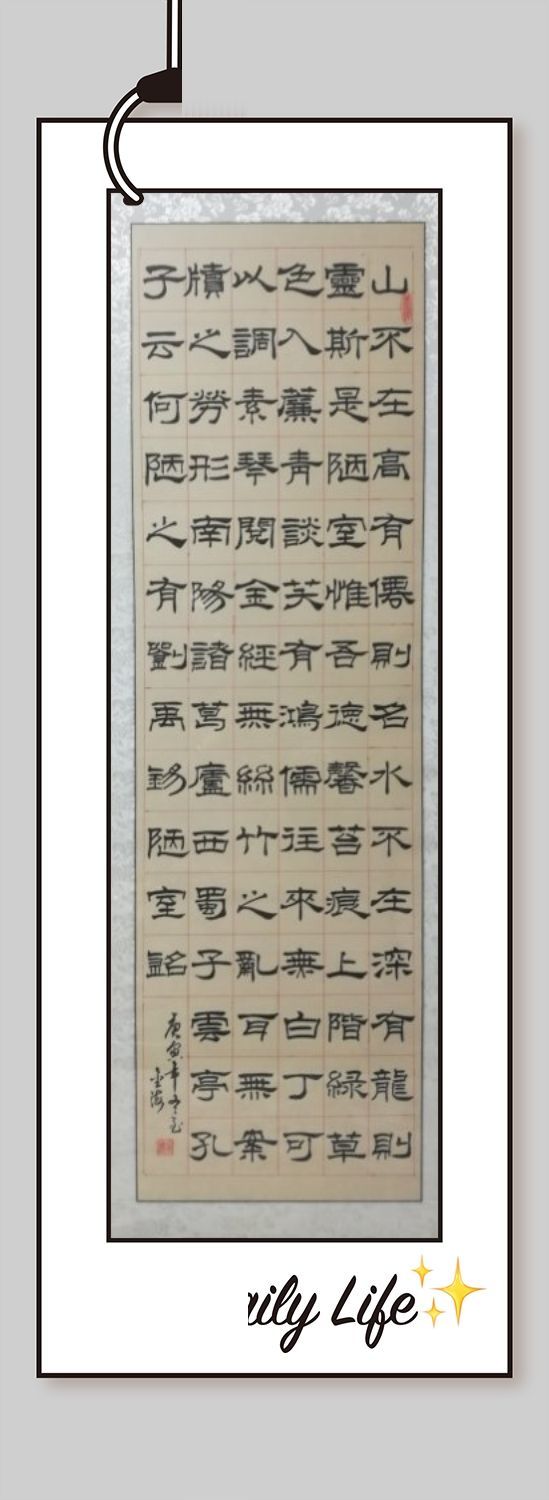 山不在高有僊則名水不在深有龍則
靈斯是陋室惟吾德馨苔痕上階緑草
色入簾青談笑有鴻儒往來無白丁可
以調素琴閱金經無絲竹之亂耳無案
牘之勞形南陽諸葛廬西蜀子雲亭孔
子云何陋之有劉禹錫陋室銘
庚寅年冬
金海
aily Life